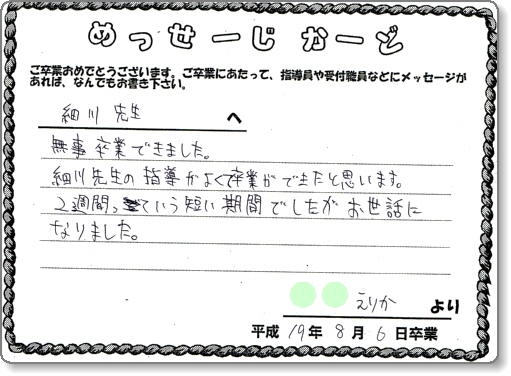 めっせーじ かーど
ご卒業おめでとうございます。ご卒業にあたって、指導員や受付職員などにメッセージが
あれば、なんでもお書き下さい。
細川 先生 へ
無事卒業できました。
細川先生の指導がよくて卒業ができたと思います。
2週間っていう短い期間でしたがお世話に
なりました。
えりか より
平成 19年 8月 6日卒業